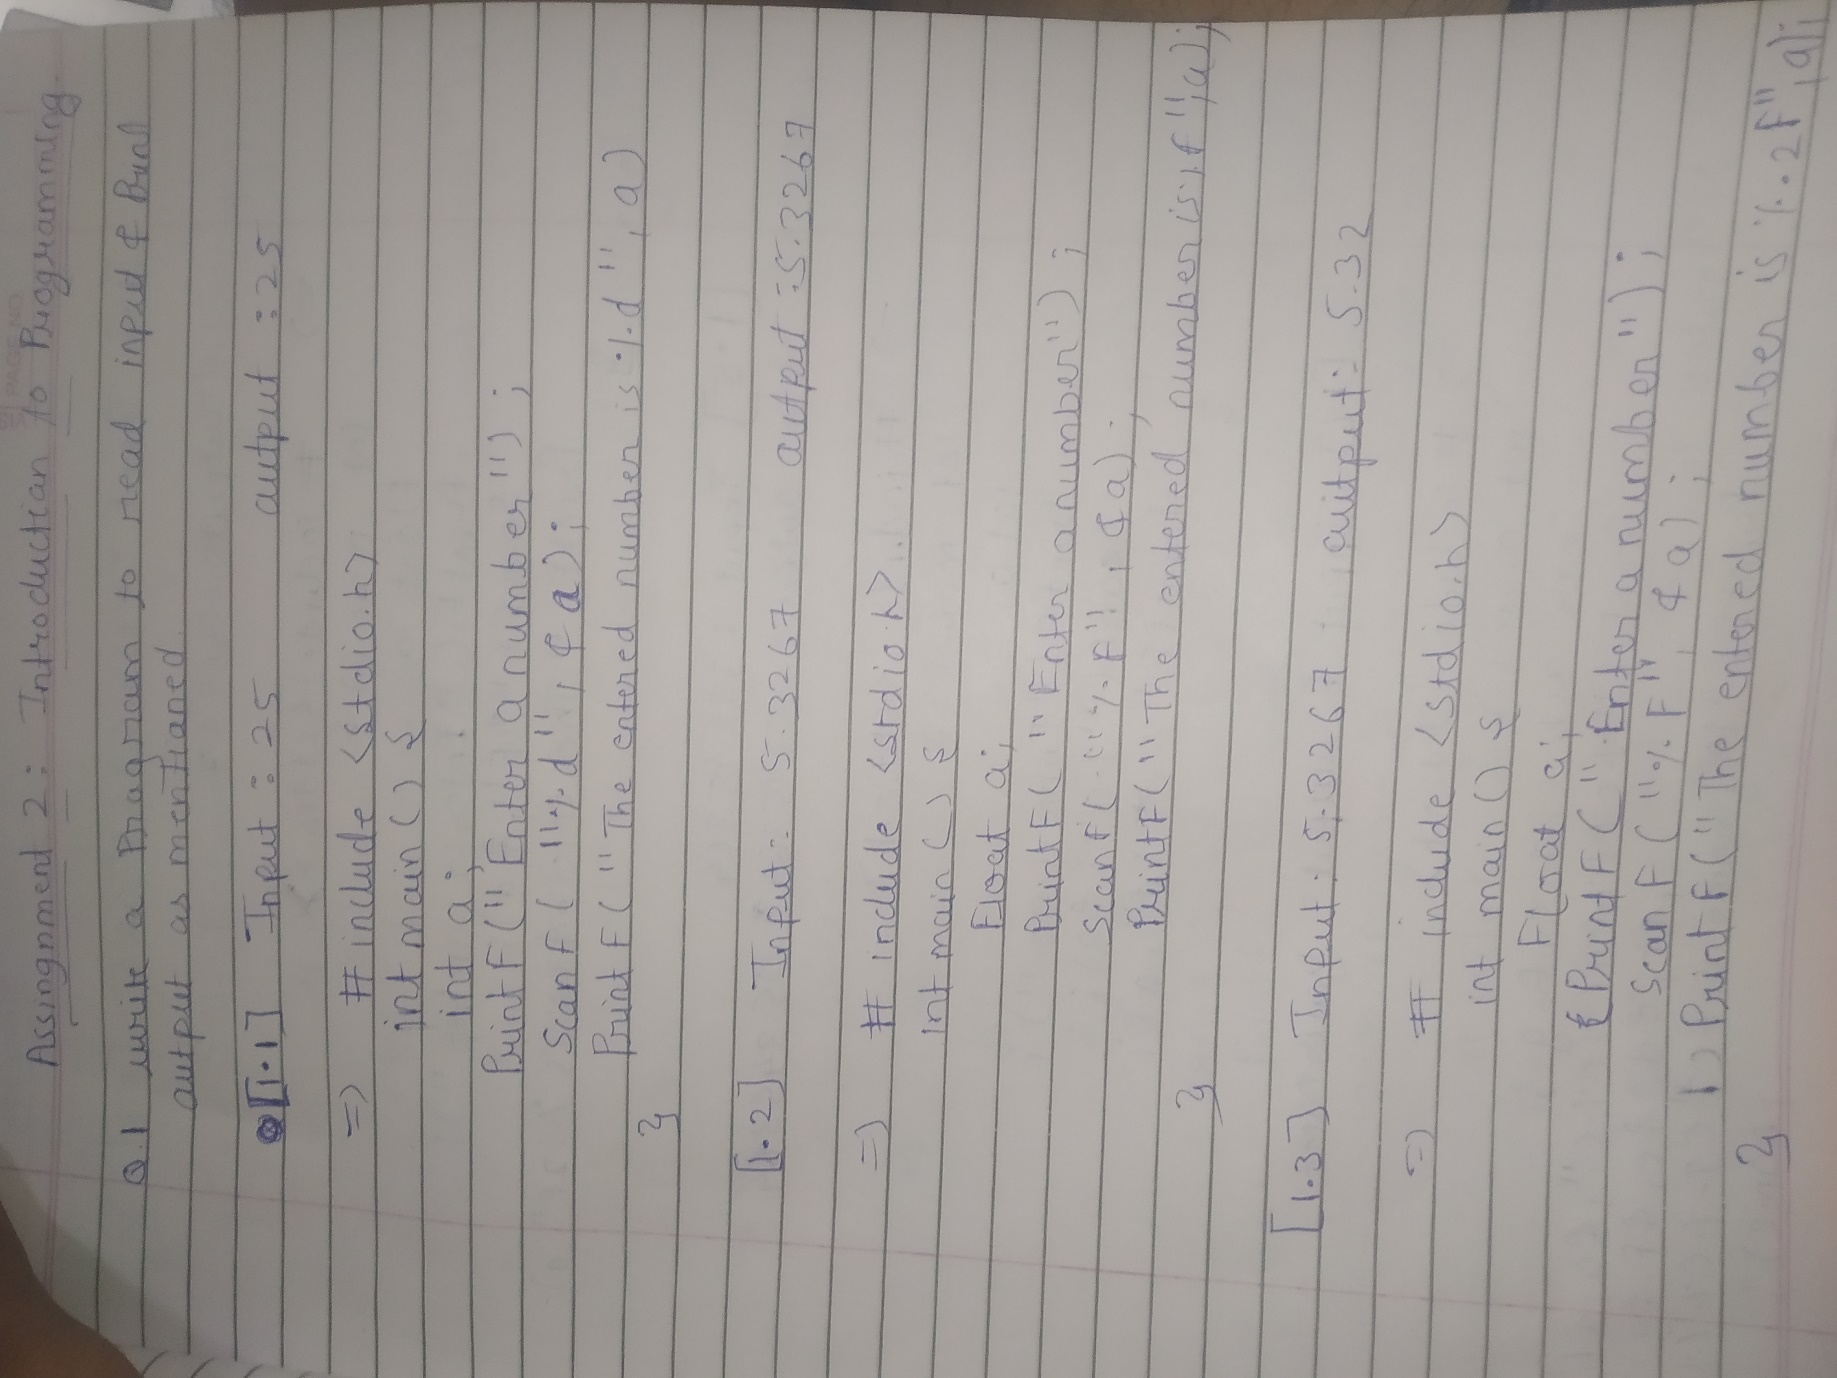 PAGE NO
Assingnment 2: Introduction to Programming
Q.1 write a Program to read input & Print
output as mentioned
[1.1] Input : 25 output : 25
=> # include <stdio.h>
int main () {
int a;
PrintF ("Enter a number");
ScanF ( "%d", & a);
PrintF ("The entered number is %d", a)
}
[1.2] Input: 5.3267 output :5.3267
=> # include <stdio.h>
int main () {
Float a;
PrintF ("Enter a number");
ScanF ( "%F", & a);
PrintF ("The entered number is %f", a);
}
[1.3] Input: 5.3267 output: 5.32
=> # include <stdio.h>
int main () {
Float a;
PrintF ("Enter a number");
ScanF ("%F", & a);
PrintF ("The entered number is %.2F", a);
}